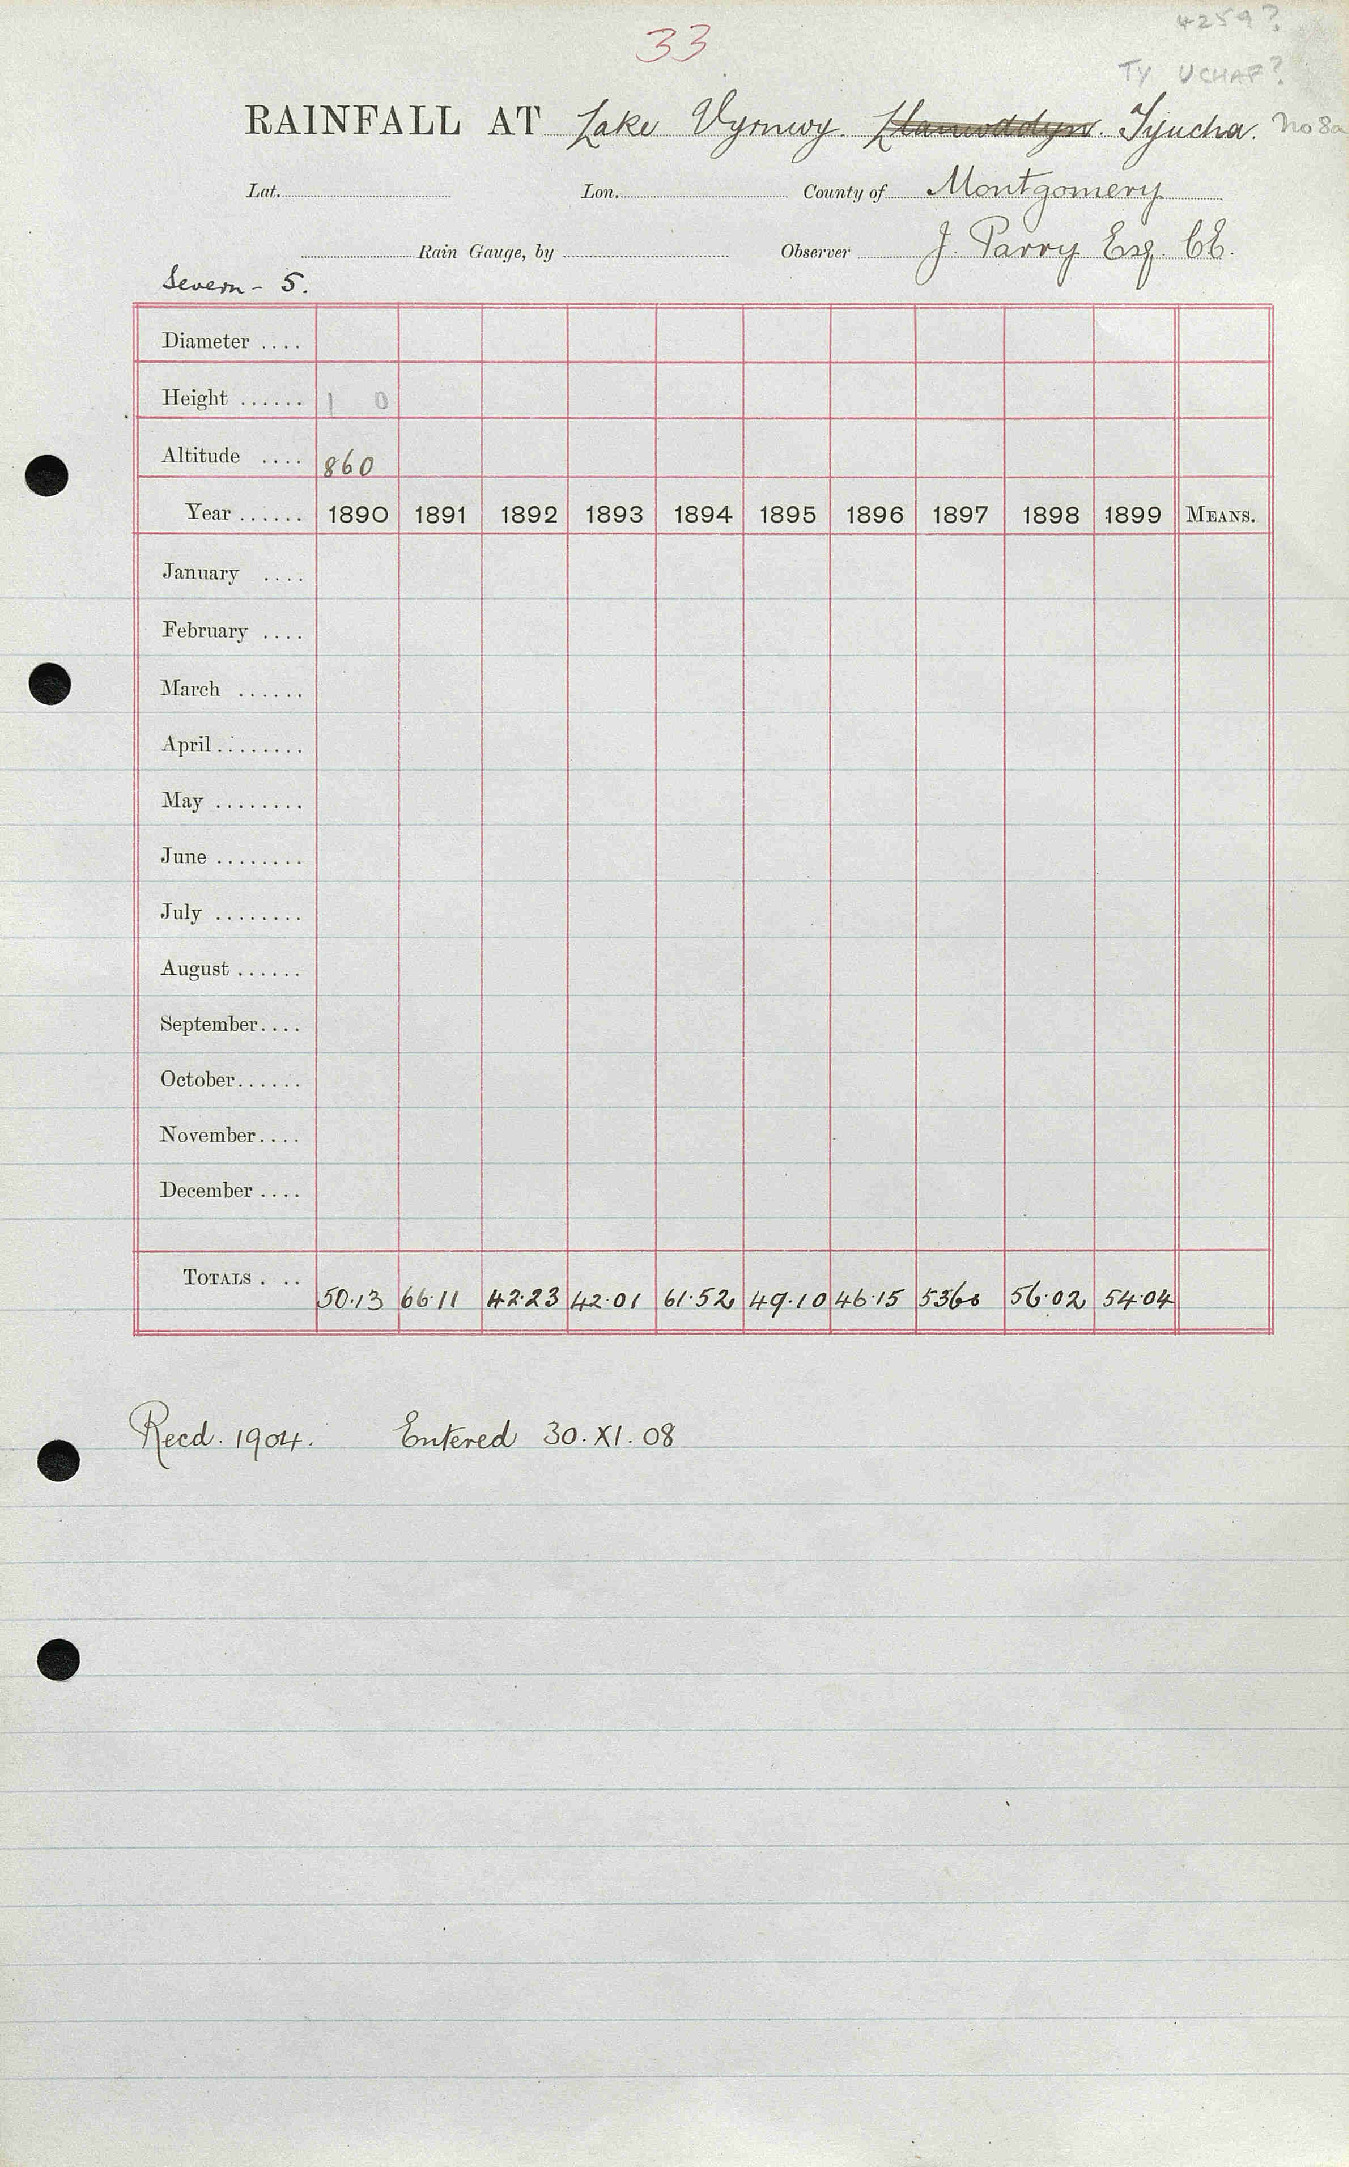 33
4259?
TY UCHAF?
RAINFALL AT Lake Vyrnwy. Llanwddyn. Tyucha. No 8a
Lat. Lon. County of Montgomery
Rain Gauge, by Observer J. Parry Esq. CE.
Severn - 5.
Diameter ....
Height ...... 1 0
Altitude .... 860
Year ...... 1890 1891 1892 1893 1894 1895 1896 1897 1898 1899 MEANS.
January ....
February ....
March ......
April ........
May ........
June ........
July ........
August ......
September ....
October ......
November ....
December ....
TOTALS . .. 50.13 66.11 42.23 42.01 61.52 49.10 46.15 5360 56.02 54.04
Recd. 1904. Entered 30.XI.08